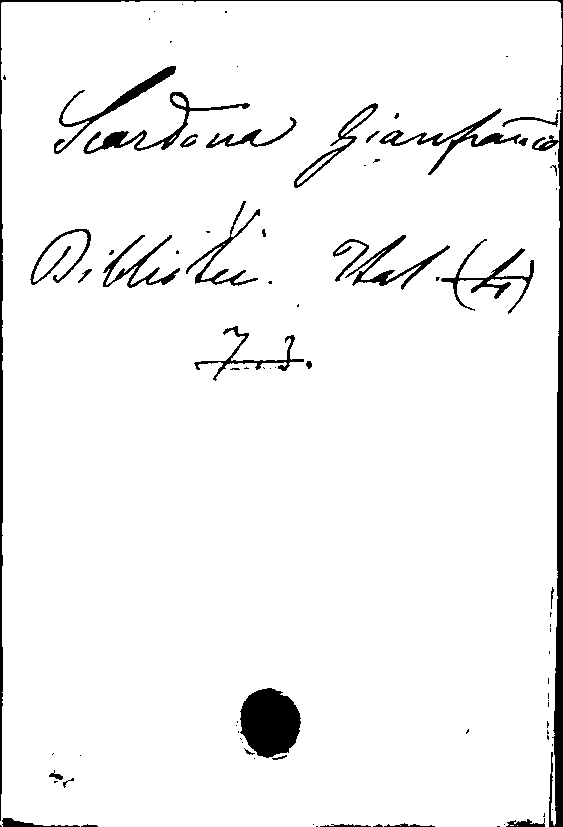 Scardona Gianfranco
V.
Bibliotei. Ital. (4)
7.3.